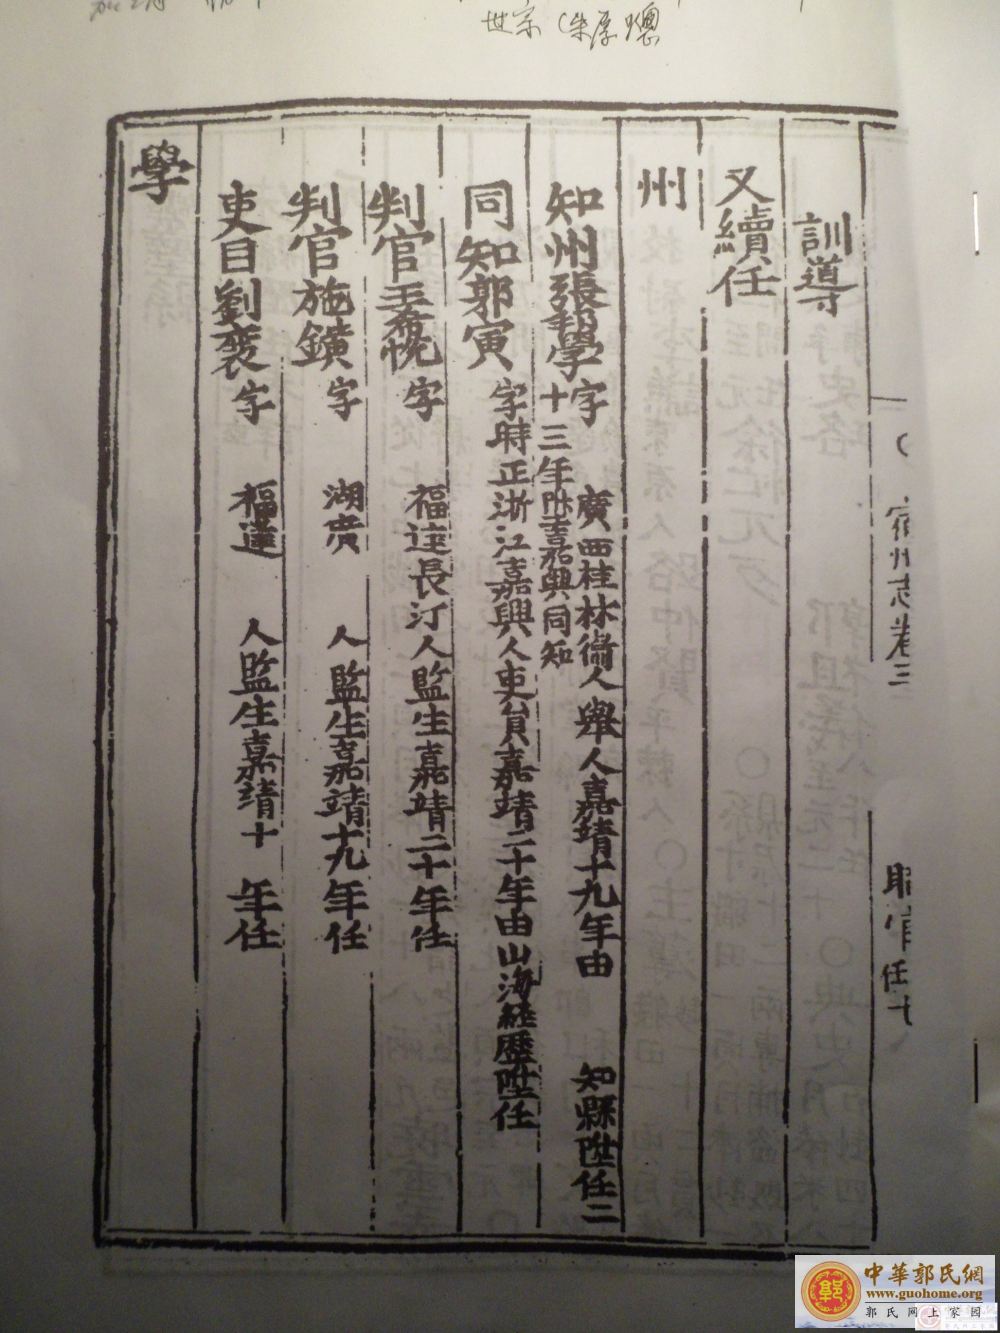 世宗(朱厚璁
宿州志卷三
訓導
又續任
州
知州張翱學字 廣西桂林衛人舉人嘉靖十九年由 知縣陞任二
十三年陞嘉興同知
同知郭寅字時正浙江嘉興人吏員嘉靖二十年由山海經歷陞任
判官王希悅字 福建長汀人監生嘉靖二十年任
判官施鐄字 湖廣 人監生嘉靖十九年任
吏目劉袤字 福建 人監生嘉靖十 年任
學
中華郭氏網
www.guohome.org
郭氏网上家园